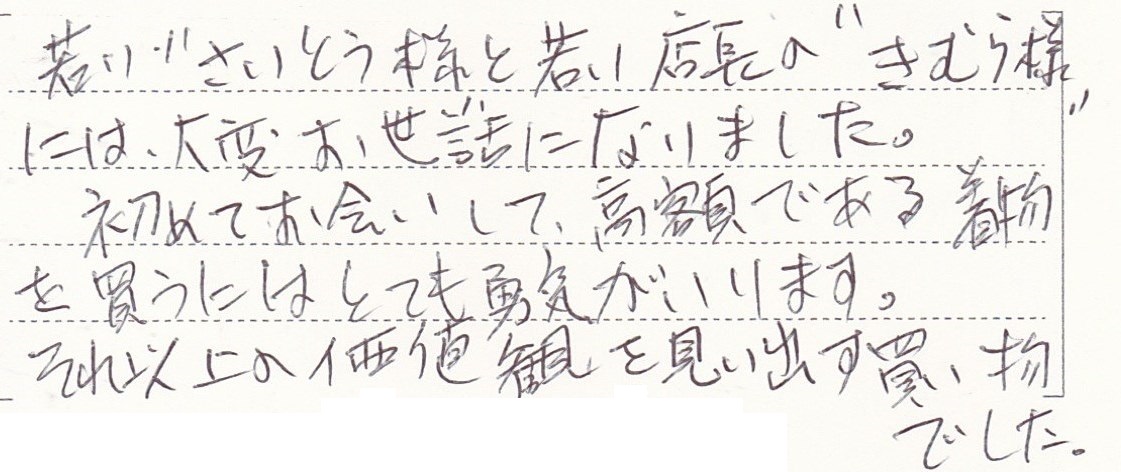 若い"さいとう様と若い店長の"きむら様"
には、大変お世話になりました。
初めてお会いして、高額である着物
を買うにはとても勇気がいります。
それ以上の価値観を見い出す買い物
でした。